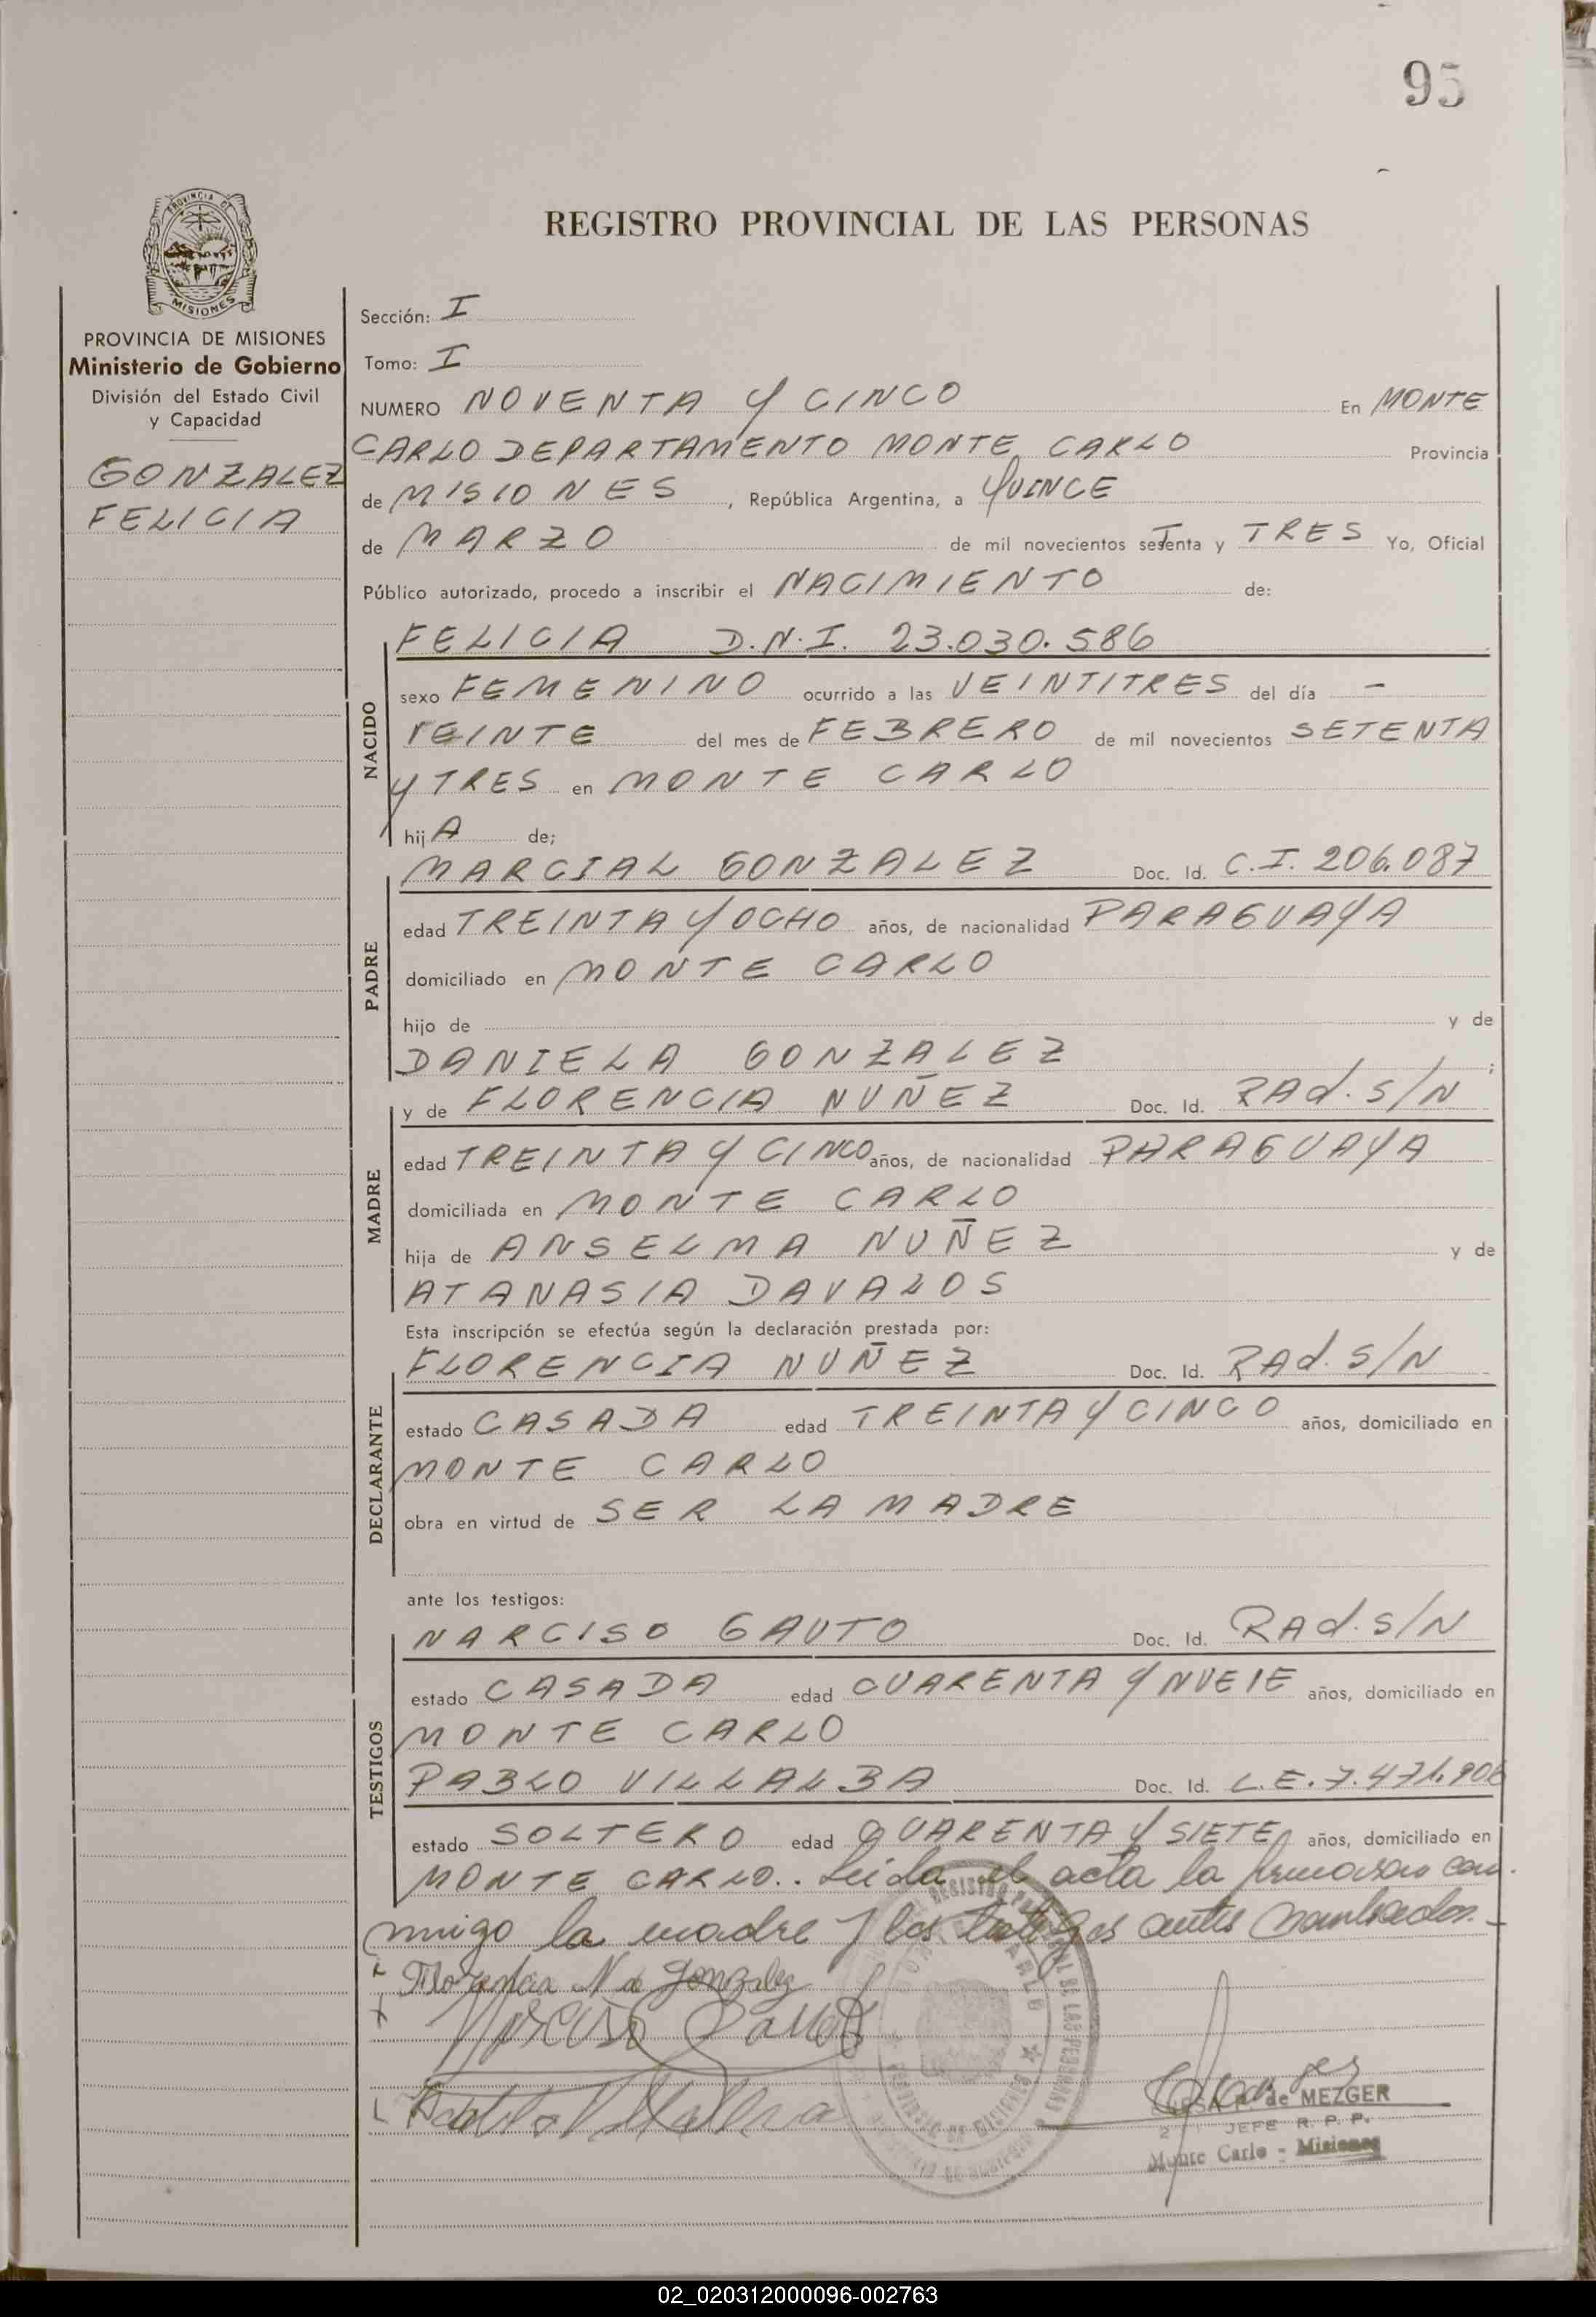 95
REGISTRO PROVINCIAL DE LAS PERSONAS
PROVINCIA DE
MISIONES
PROVINCIA DE MISIONES
Ministerio de Gobierno
División del Estado Civil
y Capacidad
GONZALEZ
FELICIA
Sección: I
Tomo: I
NUMERO NOVENTA Y CINCO En MONTE
CARLO DEPARTAMENTO MONTE CARLO Provincia
de MISIONES, República Argentina, a QUINCE
de MARZO de mil novecientos setenta y TRES Yo, Oficial
Público autorizado, procedo a inscribir el NACIMIENTO de:
NACIDO
FELICIA D.N.I. 23.030.586
sexo FEMENINO ocurrido a las VEINTITRES del día -
VEINTE del mes de FEBRERO de mil novecientos SETENTA
Y TRES en MONTE CARLO
hij A de;
PADRE
MARCIAL GONZALEZ Doc. Id. C.I. 206.087
edad TREINTA Y OCHO años, de nacionalidad PARAGUAYA
domiciliado en MONTE CARLO
hijo de y de
DANIELA GONZALEZ ;
MADRE
y de FLORENCIA NUÑEZ Doc. Id. RAd. S/N
edad TREINTA Y CINCO años, de nacionalidad PARAGUAYA
domiciliada en MONTE CARLO
hija de ANSELMA NUÑEZ y de
ATANASIA DAVALOS
Esta inscripción se efectúa según la declaración prestada por:
DECLARANTE
FLORENCIA NUÑEZ Doc. Id. RAd. S/N
estado CASADA edad TREINTA Y CINCO años, domiciliado en
MONTE CARLO
obra en virtud de SER LA MADRE
ante los testigos:
TESTIGOS
NARCISO GAUTO Doc. Id. RAd. S/N
estado CASADA edad CUARENTA Y NUEVE años, domiciliado en
MONTE CARLO
PABLO VILLALBA Doc. Id. L.E. 7.471.906
estado SOLTERO edad QUARENTA Y SIETE años, domiciliado en
MONTE CARLO.. Leida el acta la firmaron con-
migo la madre y los testigos antes nombrados.-
Florencia N de Gonzalez
Narciso Gauto
Villalba
de MEZGER
JEFE R. P. P.
Monte Carlo - Misiones
02_020312000096-002763